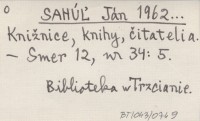 o
SAHÚĽ Ján 1962...
Knižnice, knihy, čitatelia.
- Smer 12, nr 34: 5.
Biblioteka w Trzcianie.
BT/043/0969